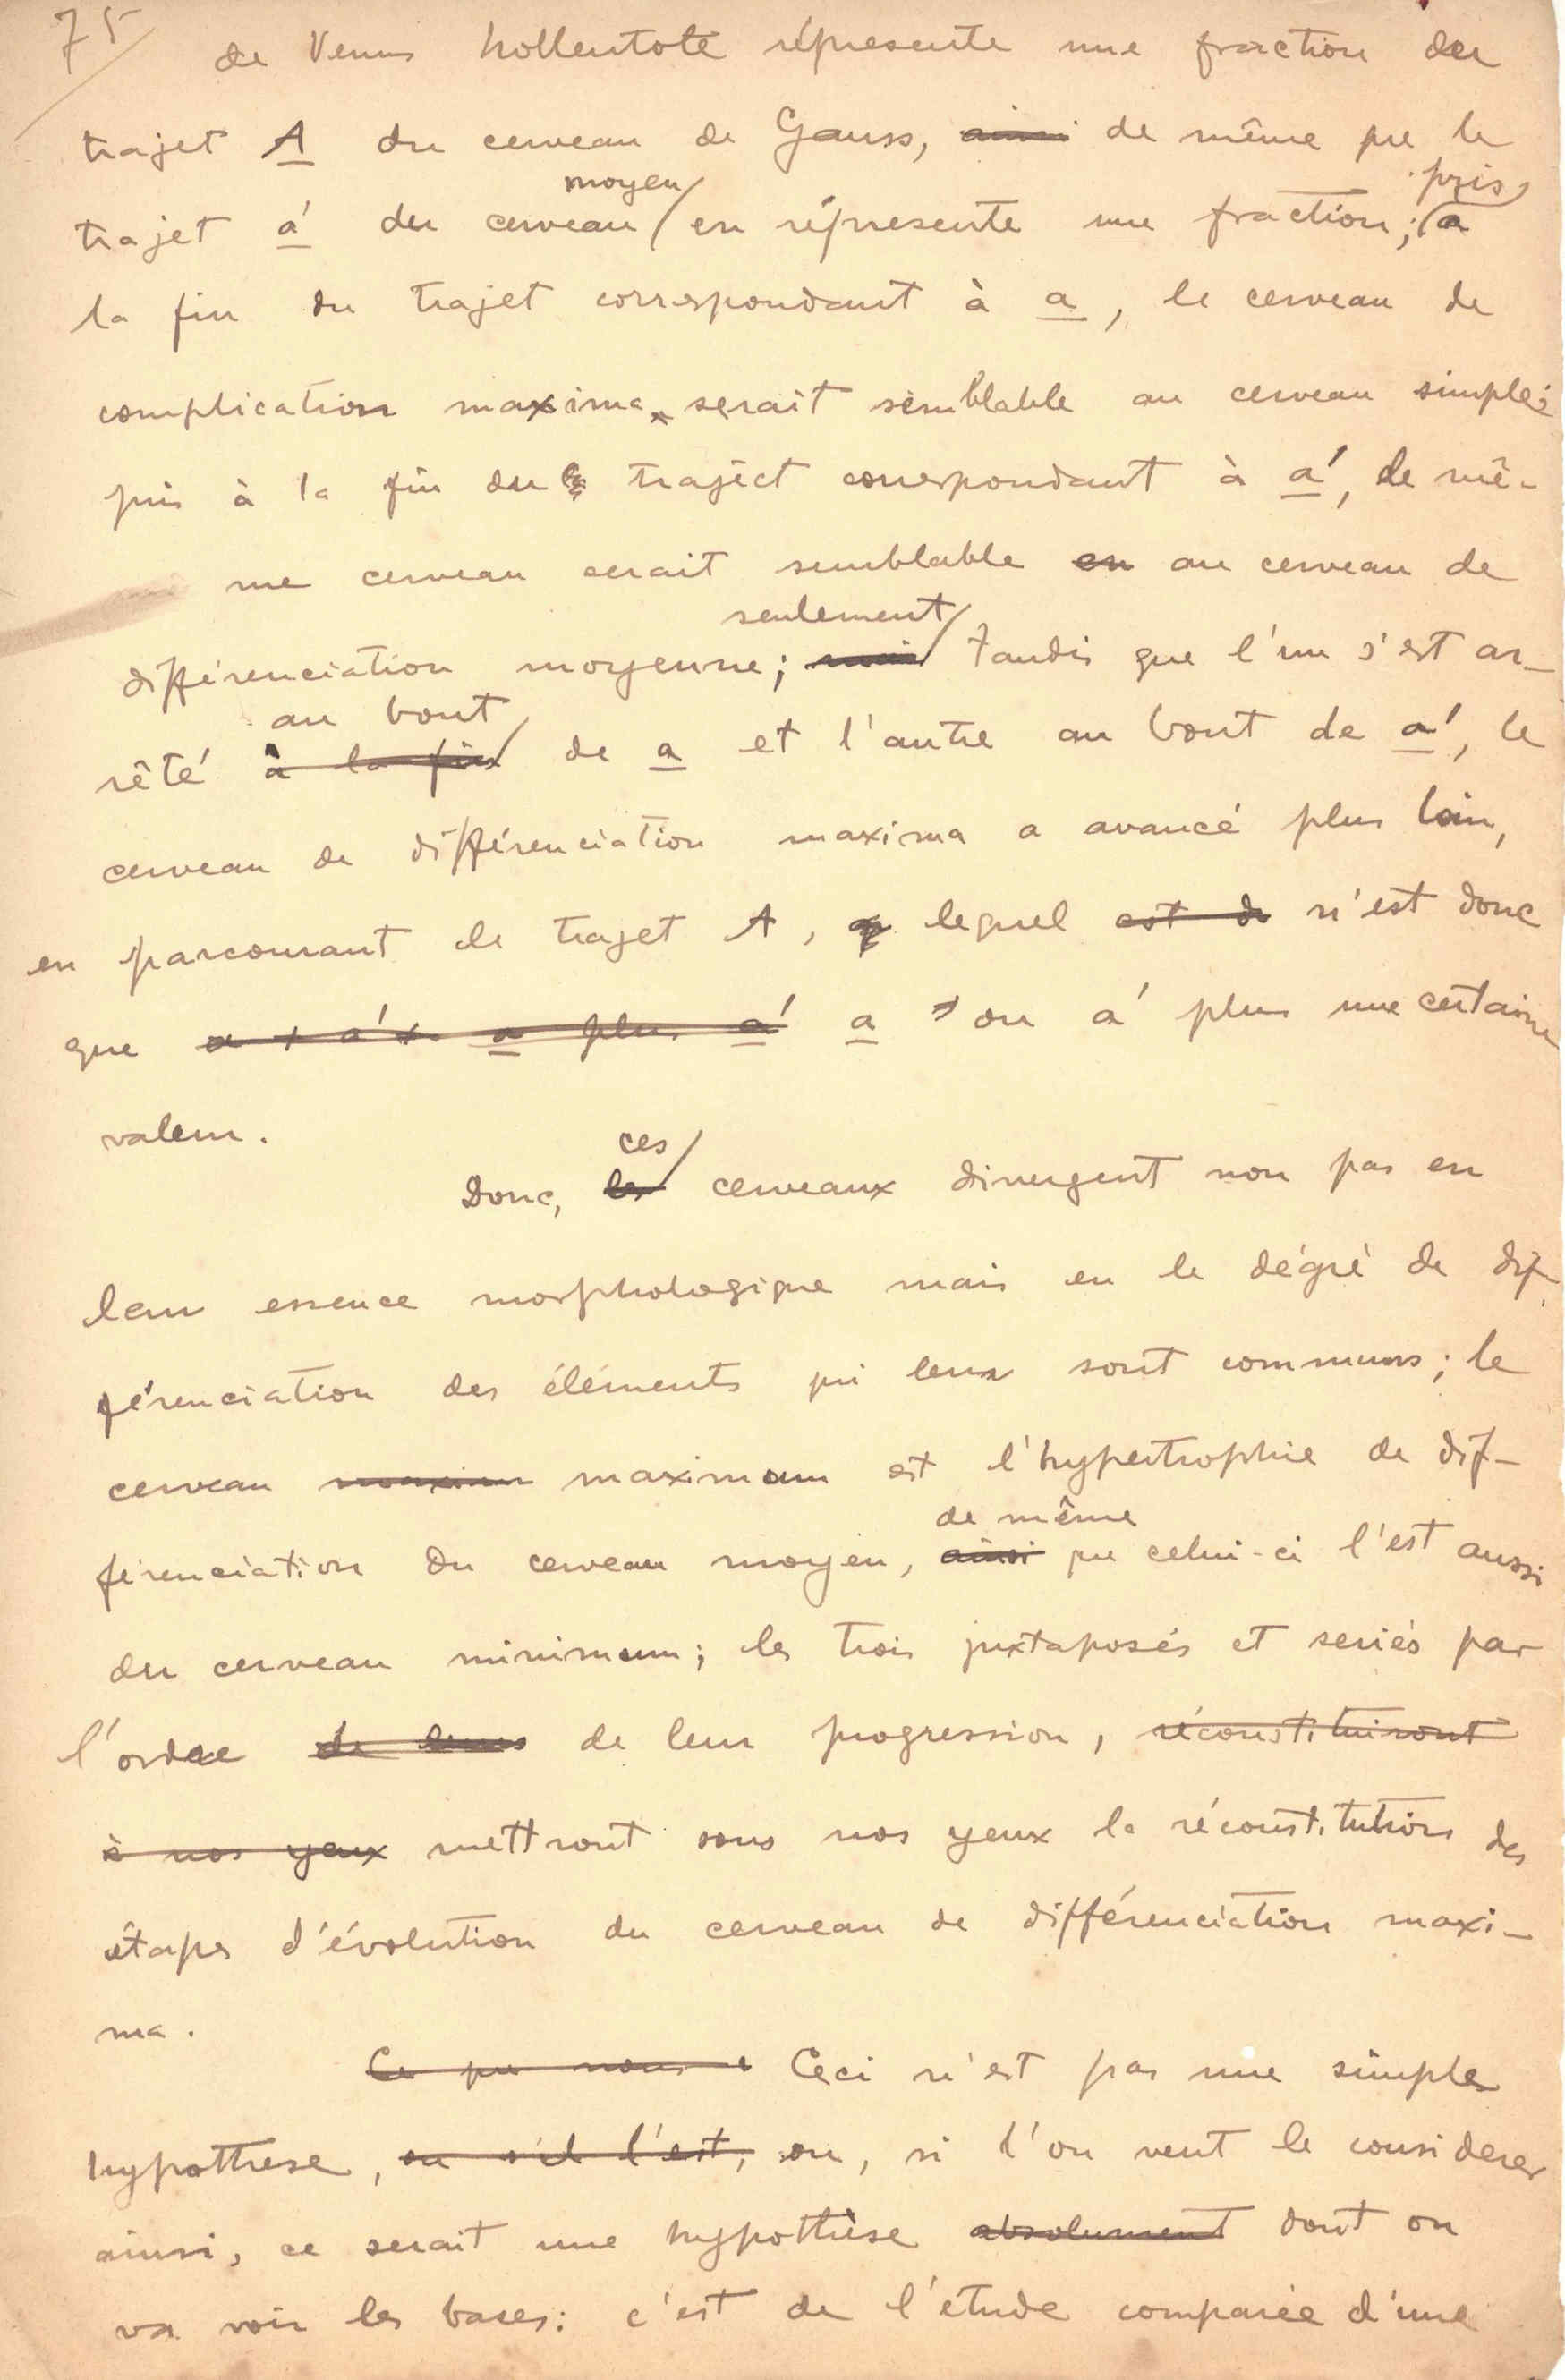 75
de Venus hottentote répresente une fraction du
trajet A du cerveau de Gauss, ainsi de même que le
moyen puis
trajet a' du cerveau en répresente une fraction; a
la fin du trajet correspondant à a, le cerveau de
complication maxima serait semblable au cerveau simple;
puis à la fin du traject correspondant à a', le mê-
me cerveau serait semblable en au cerveau de
seulement
différenciation moyenne; mais tandis que l'un s'est ar-
au bout
rêté à la fin de a et l'autre au bout de a', le
cerveau de différenciation maxima a avancé plus loin,
en parcourant le trajet A, q lequel est de n'est donc
que a + a' + a plus a' a ou a' plus une certaine
valeur.
ces
Donc, les cerveaux divergent non pas en
leur essence morphologique mais en le dégré de dif-
férenciation des éléments qui leur sont communs; le
cerveau maximu maximum est l'hypertrophie de dif-
de même
férenciation du cerveau moyen, ainsi que celui-ci l'est aussi
du cerveau minimum; les trois juxtaposés et seriés par
l'ordre de leurs de leur progression, réconstituiront
à nos yeux mettront sous nos yeux la réconstitution des
étapes d'évolution du cerveau de différenciation maxi-
ma.
Ce que nous Ceci n'est pas une simple
hypothese, ou s'il l'est, ou, si l'on veut le considerer
ainsi, ce serait une hypothèse absolument dont on
va voir les bases: c'est de l'étude comparée d'une